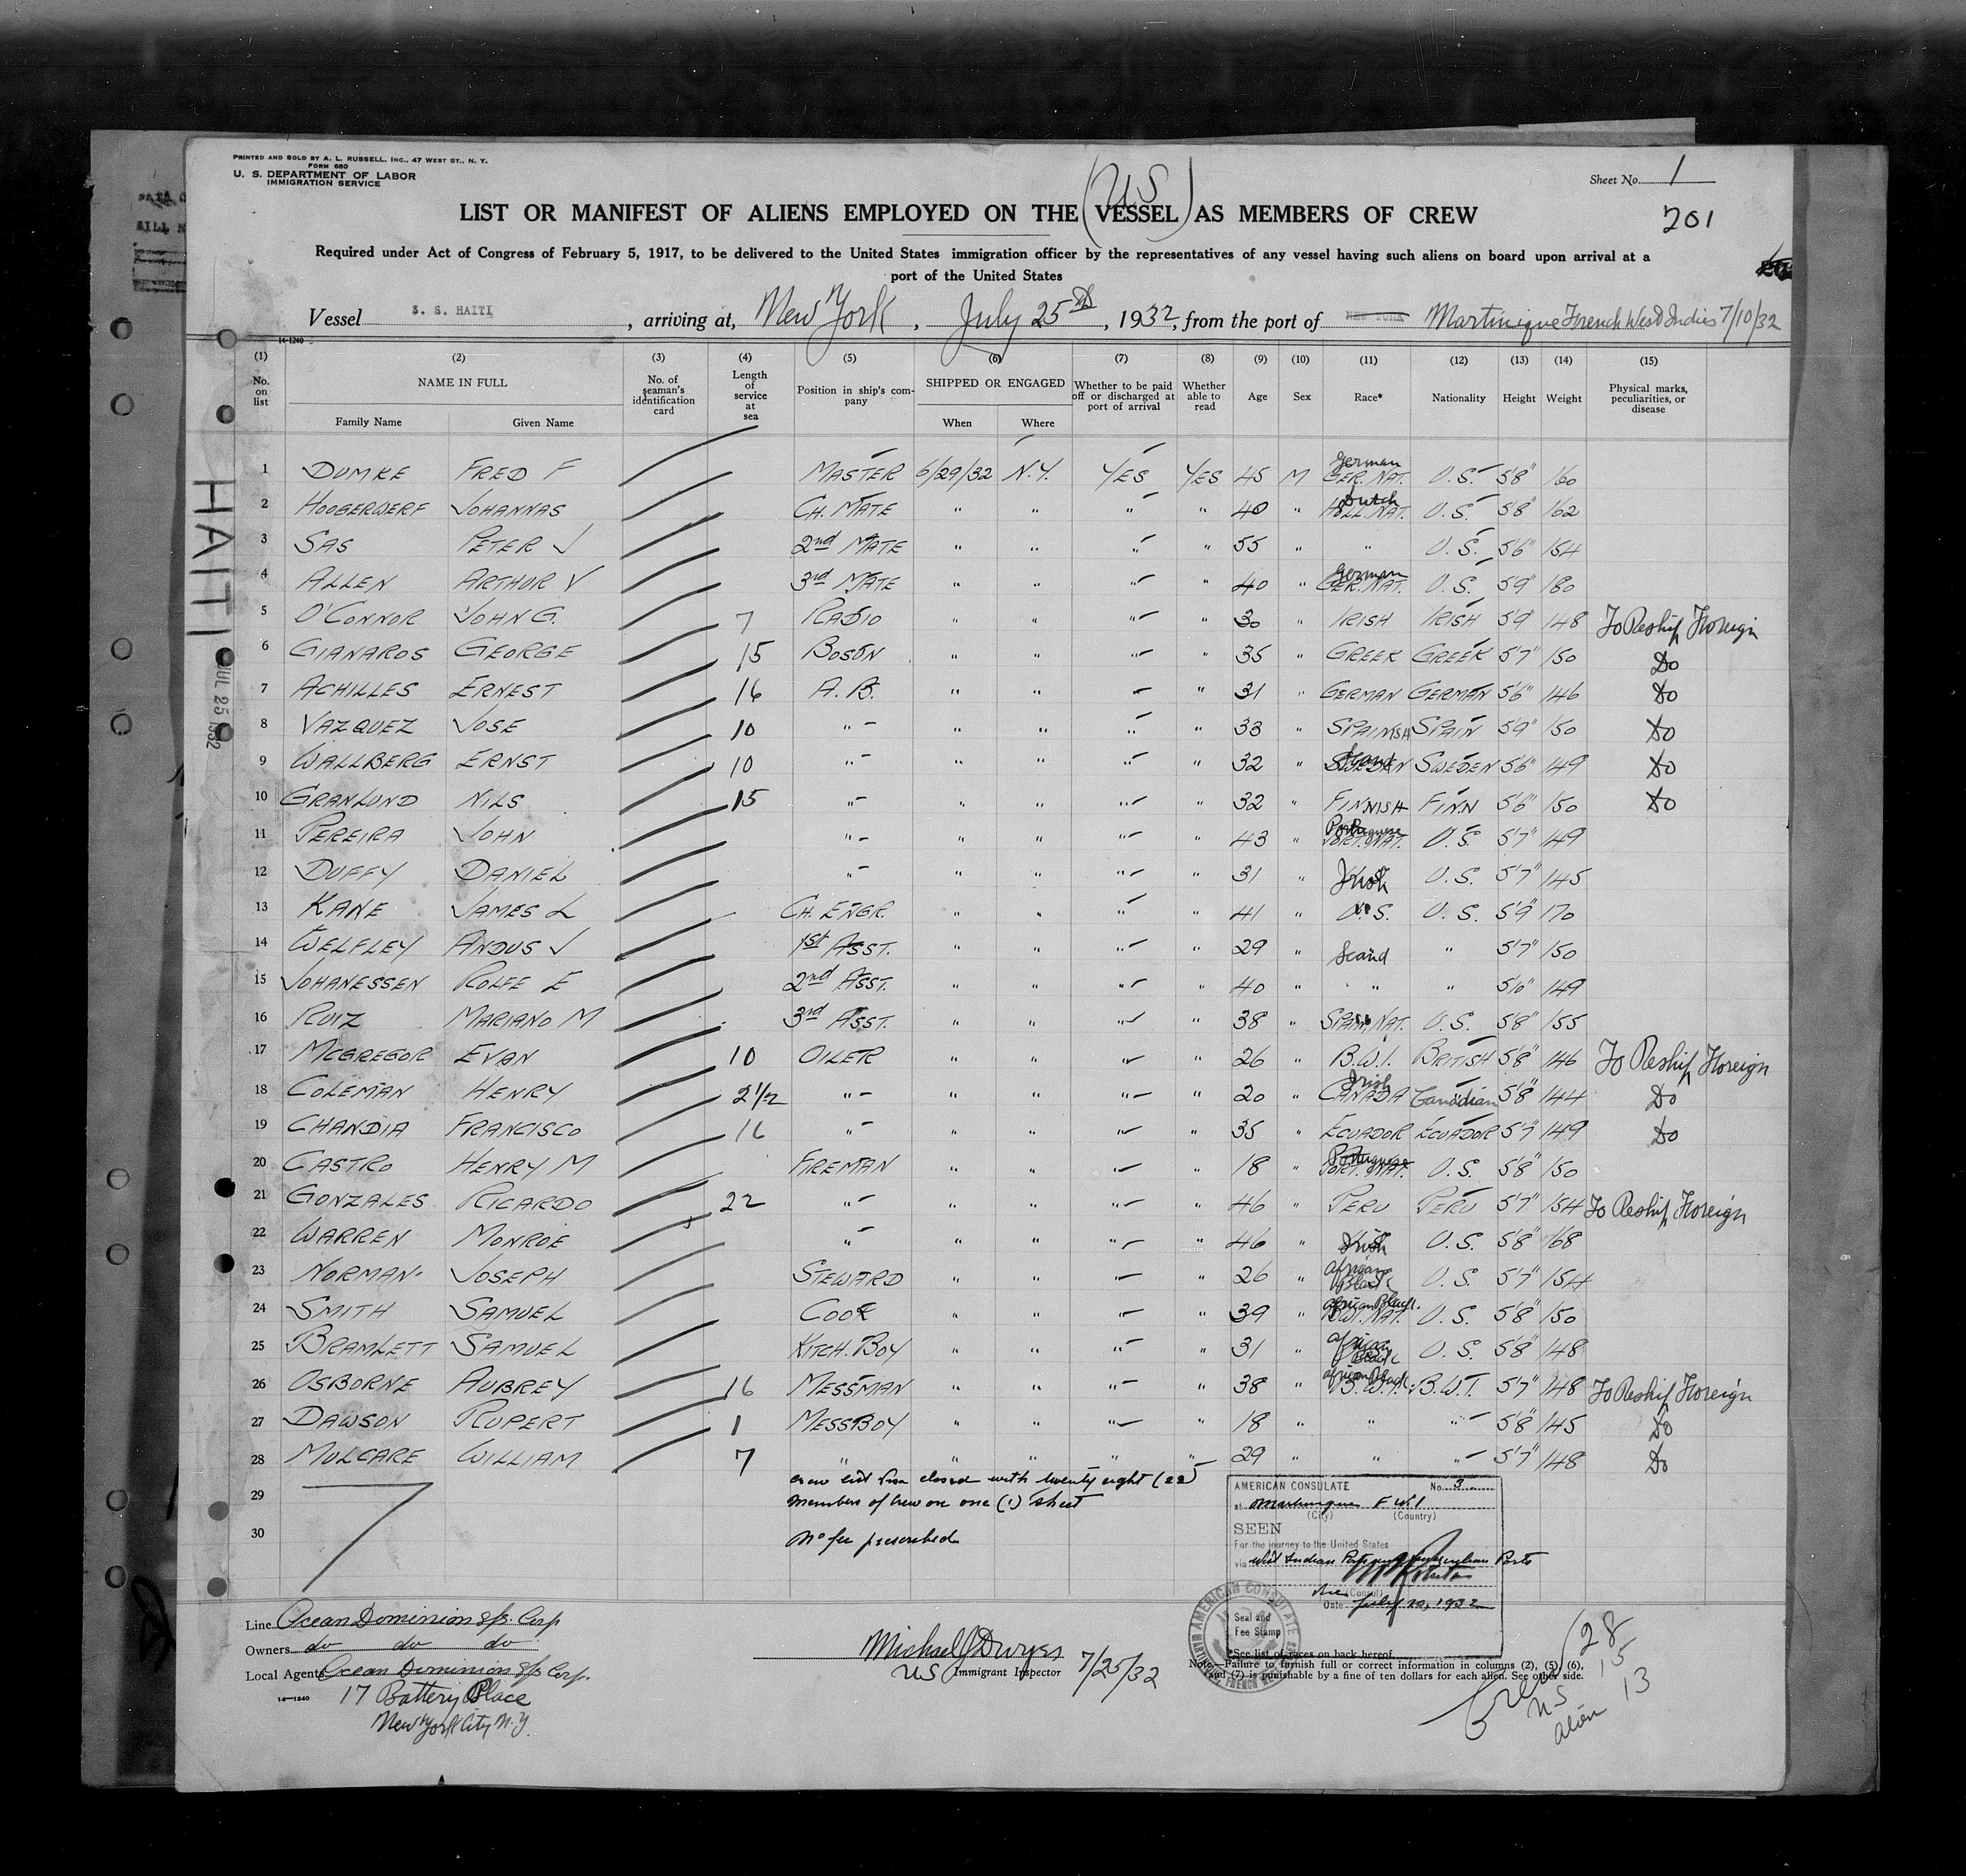 PRINTED AND SOLD BY A. L. RUSSELL, INC., 47 WEST ST., N. Y.
FORM 680
U. S. DEPARTMENT OF LABOR
IMMIGRATION SERVICE
Sheet No. 1
201
(U.S)
LIST OR MANIFEST OF ALIENS EMPLOYED ON THE VESSEL AS MEMBERS OF CREW
Required under Act of Congress of February 5, 1917, to be delivered to the United States immigration officer by the representatives of any vessel having such aliens on board upon arrival at a
port of the United States
Vessel S. S. HAITI, arriving at, New York, July 25th, 1932, from the port of NEW YORK Martinique French West Indies 7/10/32
14-1240
(1) (2) (3) (4) (5) (6) (7) (8) (9) (10) (11) (12) (13) (14) (15)
No. on list NAME IN FULL No. of seaman's identification card Length of service at sea Position in ship's company SHIPPED OR ENGAGED Whether to be paid off or discharged at port of arrival Whether able to read Age Sex Race* Nationality Height Weight Physical marks, peculiarities, or disease
Family Name Given Name When Where
1 DUMKE FRED F MASTER 6/29/32 N.Y. YES YES 45 M German GER. NAT. U.S. 5'8" 160
2 HOOGERWERF JOHANNAS CH. MATE " " " " 40 " Dutch HOLL. NAT. U.S. 5'8" 162
3 SAS PETER J 2nd MATE " " " " 55 " " U.S. 5'6" 154
4 ALLEN ARTHUR V 3rd MATE " " " " 40 " German GER. NAT. U.S. 5'9" 180
5 O'CONNOR JOHN G. 7 RADIO " " " " 30 " IRISH IRISH 5'9" 148 To Reship Foreign
6 GIANAROS GEORGE 15 BOSUN " " " " 35 " GREEK GREEK 5'7" 150 Do
7 ACHILLES ERNEST 16 A.B. " " " " 31 " GERMAN GERMAN 5'6" 146 Do
8 VAZQUEZ JOSE 10 " " " " " 33 " SPAINISH SPAIN 5'9" 150 Do
9 WALLBERG ERNST 10 " " " " " 32 " Scand SWEDEN SWEDEN 5'6" 149 Do
10 GRANLUND NILS 15 " " " " " 32 " FINNISH FINN 5'6" 150 Do
11 PEREIRA JOHN " " " " " 43 " Portuguese PORT. NAT. U.S. 5'7" 149
12 DUFFY DANIEL " " " " " 31 " Irish U.S. 5'7" 145
13 KANE JAMES L CH. ENGR. " " " " 41 " U.S. U.S. 5'9" 170
14 WELFLEY ANDUS J 1st ASST. " " " " 29 " Scand " 5'7" 150
15 JOHANESSEN ROLFE E 2nd ASST. " " " " 40 " " " 5'10" 149
16 RUIZ MARIANO M 3rd ASST. " " " " 38 " SPAN. NAT. U.S. 5'8" 155
17 MCGREGOR EVAN 10 OILER " " " " 26 " B.W.I. BRITISH 5'8" 146 To Reship Foreign
18 COLEMAN HENRY 2 1/2 " " " " " 20 " Irish CANADA Canadian 5'8" 144 Do
19 CHANDIA FRANCISCO 16 " " " " " 35 " ECUADOR ECUADOR 5'7" 149 Do
20 CASTRO HENRY M FIREMAN " " " " 18 " Portuguese PORT. NAT. U.S. 5'8" 150
21 GONZALES RICARDO 22 " " " " " 46 " PERU PERU 5'7" 154 To Reship Foreign
22 WARREN MONROE " " " " " 46 " Irish U.S. 5'8" 168
23 NORMAN JOSEPH STEWARD " " " " 26 " African Black U.S. 5'7" 154
24 SMITH SAMUEL COOK " " " " 39 " African Black B.W.I. NAT. U.S. 5'8" 150
25 BRAMLETT SAMUEL KITCH. BOY " " " " 31 " African Black U.S. 5'8" 148
26 OSBORNE AUBREY 16 MESSMAN " " " " 38 " African Black B.W.I. B.W.I. 5'7" 148 To Reship Foreign
27 DAWSON RUPERT 1 MESSBOY " " " " 18 " " " 5'8" 145 Do
28 MULCARE WILLIAM 7 " " " " " 29 " " " 5'7" 148 Do
29
30
crew list visa closed with twenty eight (28)
members of crew on one (1) sheet
No fee prescribed
HAITI
JUL 25 1932
AMERICAN CONSULATE No. 3
at Martinique F.W.I
(City) (Country)
SEEN
For the journey to the United States
via West Indian Ports
Vice (Consul)
Date July 10, 1932
Seal and
Fee Stamp
AMERICAN CONSULATE
MARTINIQUE, FRENCH WEST INDIES
Line Ocean Dominion S/S. Corp
Owners do do do
Local Agents Ocean Dominion S/S Corp.
14-1240
17 Battery Place
New York City N.Y.
Michael J Dwyer
US Immigrant Inspector 7/25/32
*See list of races on back hereof.
Note.—Failure to furnish full or correct information in columns (2), (5), (6),
and (7) is punishable by a fine of ten dollars for each alien. See other side.
Crew 28
US 15
alien 13